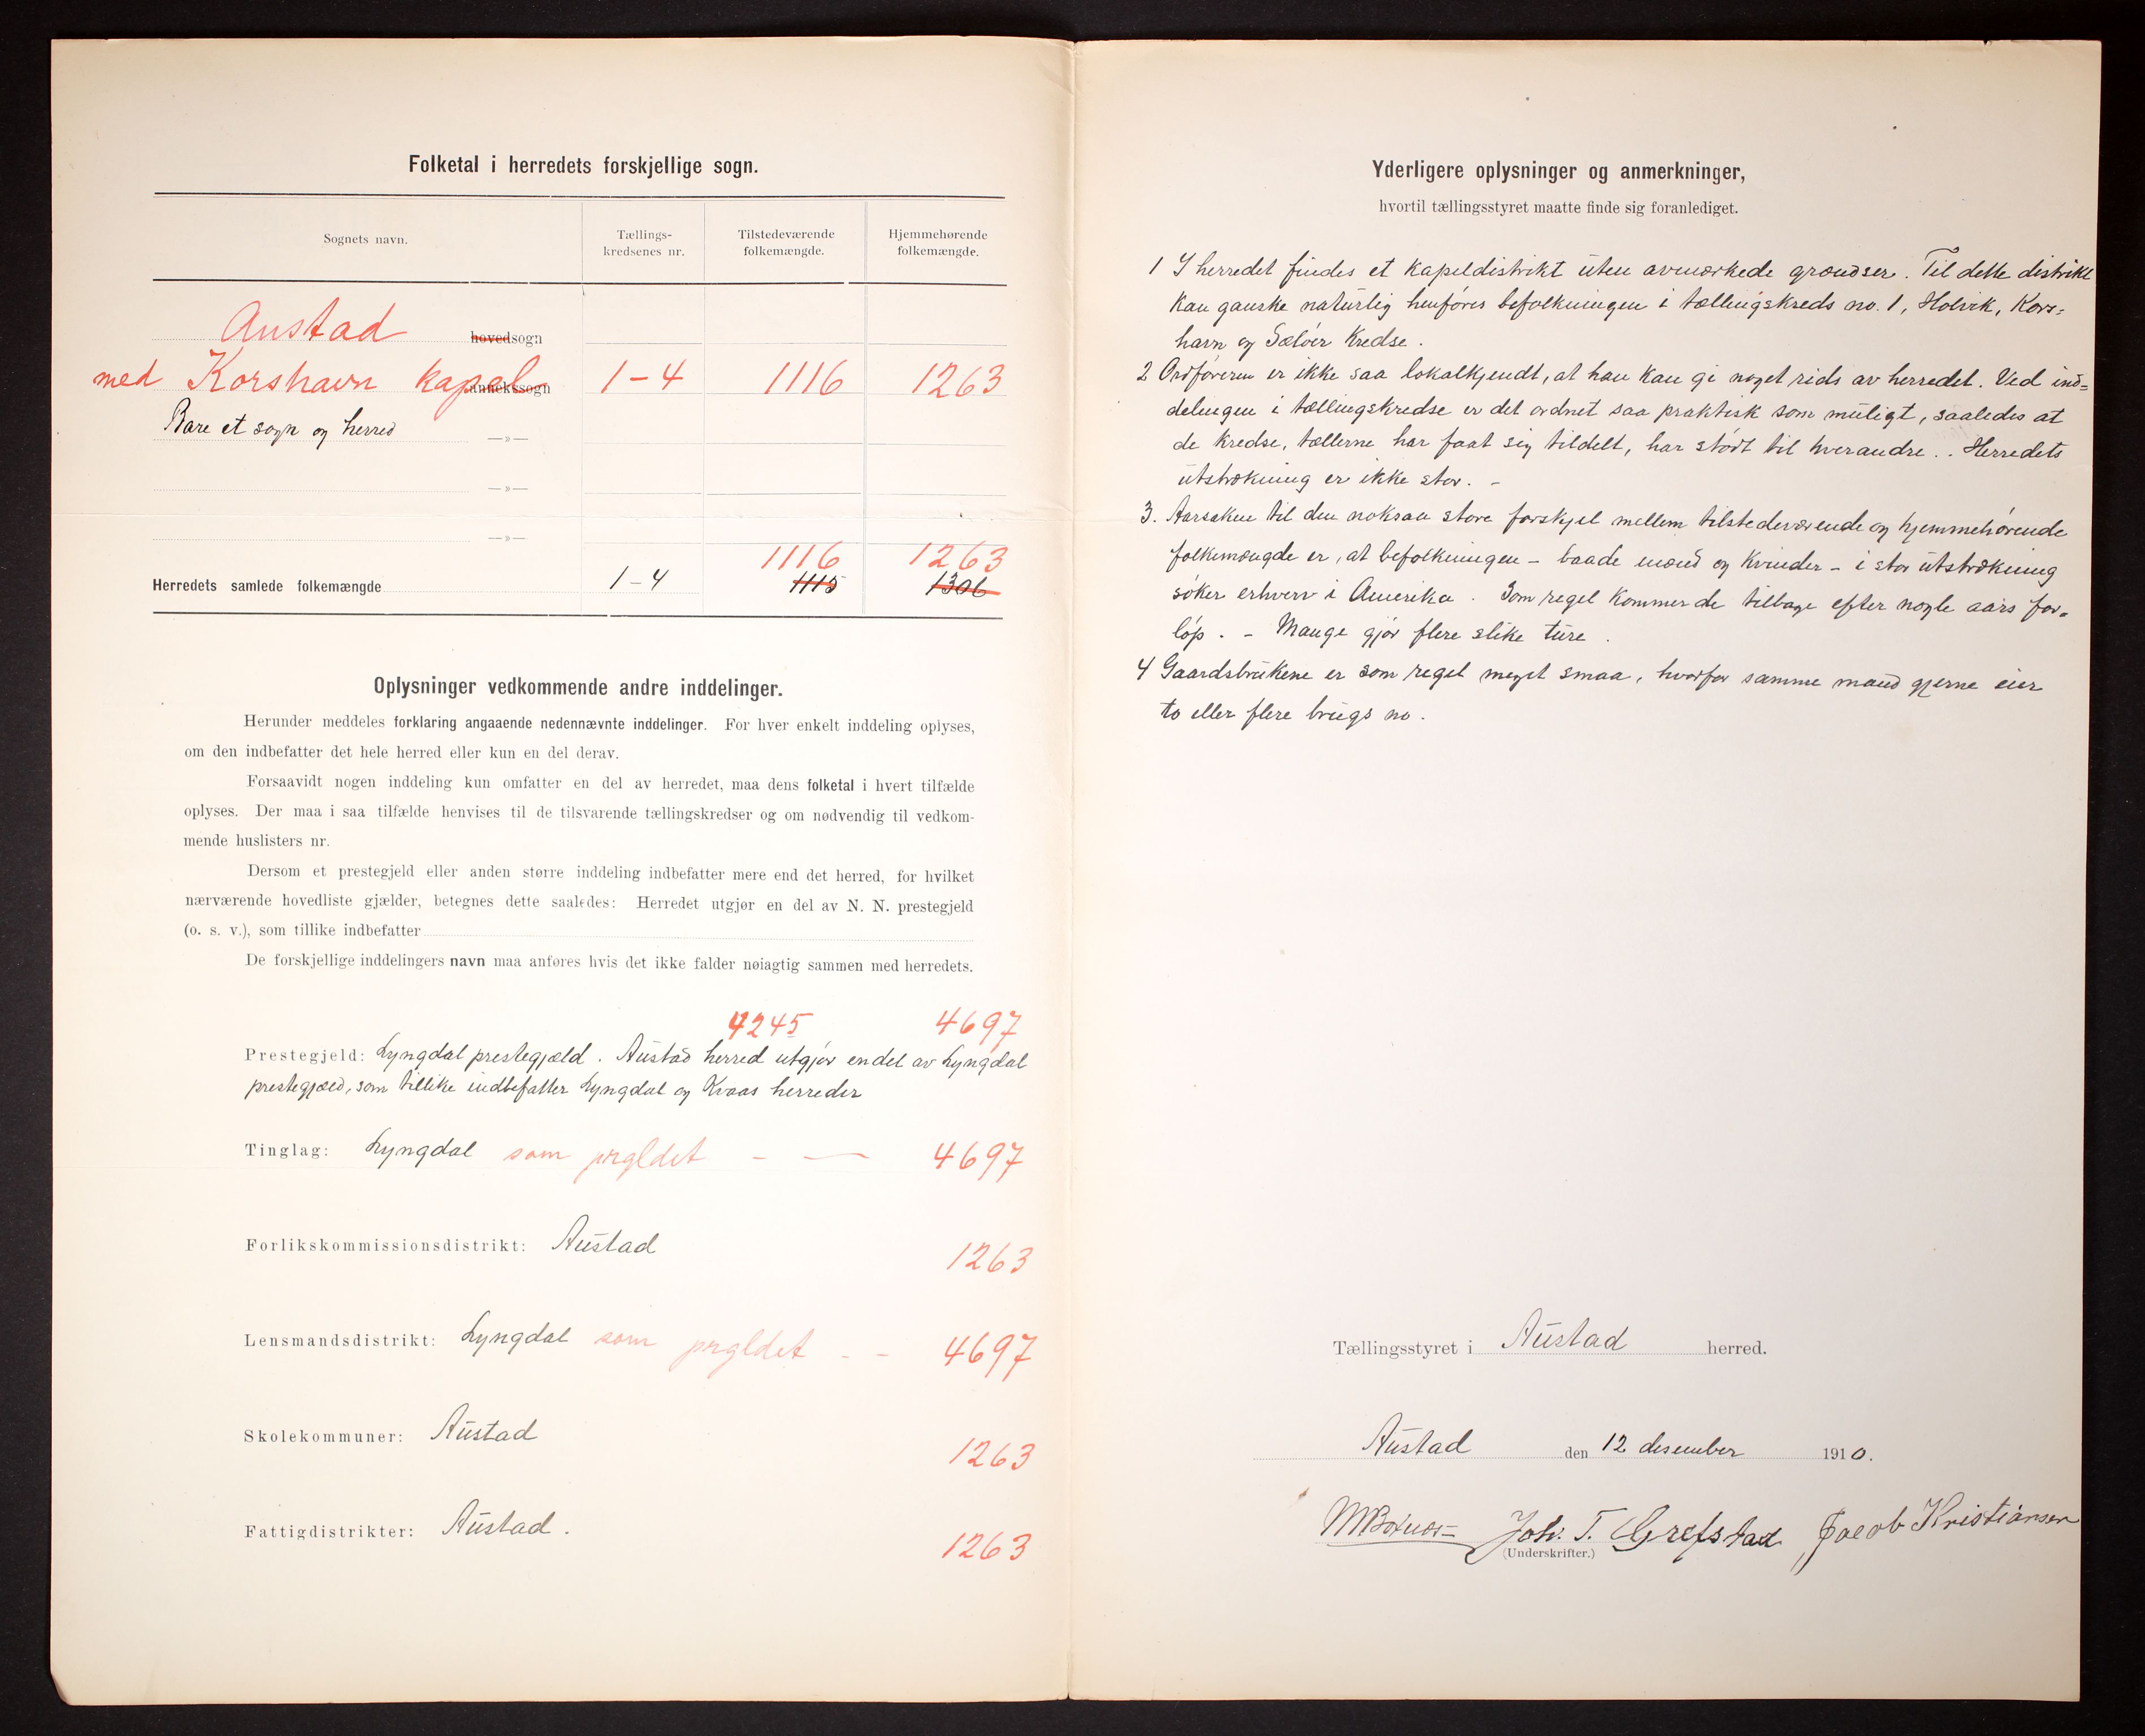 Folketal i herredets forskjellige sogn.
Sognets navn.
Tællings-
kredsenes nr.
Tilstedeværende
folkemængde.
Hjemmehørende
folkemængde.
Austad hovedsogn
med Korshavn kapel annekssogn 1-4 1116 1263
Bare et sogn og herred —»—
—»—
—»—
1116 1263
Herredets samlede folkemængde 1-4 1115 1306
Oplysninger vedkommende andre inddelinger.
Herunder meddeles forklaring angaaende nedennævnte inddelinger. For hver enkelt inddeling oplyses,
om den indbefatter det hele herred eller kun en del derav.
Forsaavidt nogen inddeling kun omfatter en del av herredet, maa dens folketal i hvert tilfælde
oplyses. Der maa i saa tilfælde henvises til de tilsvarende tællingskredser og om nødvendig til vedkom-
mende huslisters nr.
Dersom et prestegjeld eller anden større inddeling indbefatter mere end det herred, for hvilket
nærværende hovedliste gjælder, betegnes dette saaledes: Herredet utgjør en del av N. N. prestegjeld
(o. s. v.), som tillike indbefatter
De forskjellige inddelingers navn maa anføres hvis det ikke falder nøiagtig sammen med herredets.
4245 4697
Prestegjeld: Lyngdal prestegjæld. Austad herred utgjør en del av Lyngdal
prestegjæld, som tillike indbefatter Lyngdal og Kvaas herreder
Tinglag: Lyngdal som prgldet - — 4697
Forlikskommissionsdistrikt: Austad
1263
Lensmandsdistrikt: Lyngdal som prgldet - - 4697
Skolekommuner: Austad
1263
Fattigdistrikter: Austad.
1263
Yderligere oplysninger og anmerkninger,
hvortil tællingsstyret maatte finde sig foranlediget.
1 I herredet findes et kapeldistrikt uten avmærkede grændser. Til dette distrikt
kan ganske naturlig henføres befolkningen i tællingskreds no. 1, Holvik, Kors=
havn og Sæløer kredse.
2 Ordføreren er ikke saa lokalkjendt, at han kan gi noget rids av herredet. Ved ind=
delingen i tællingskredse er det ordnet saa praktisk som muligt, saaledes at
de kredse, tællerne har faat sig tildelt, har stødt til hverandre.. Herredets
utstrækning er ikke stor. -
3. Aarsaken til den noksaa store forskjel mellem tilstedeværende og hjemmehørende
folkemængde er, at befolkningen - baade mænd og kvinder - i stor utstrækning
søker erhverv i Amerika. Som regel kommer de tilbage efter nogle aars for=
løp. - Mange gjør flere slike ture.
4 Gaardsbrukene er som regel meget smaa, hvorfor samme mand gjerne eier
to eller flere brugs no.
Tællingsstyret i Austad herred.
Austad den 12 desember 1910.
Joh. T. Grefstad Jacob Kristiansen
(Underskrifter.)